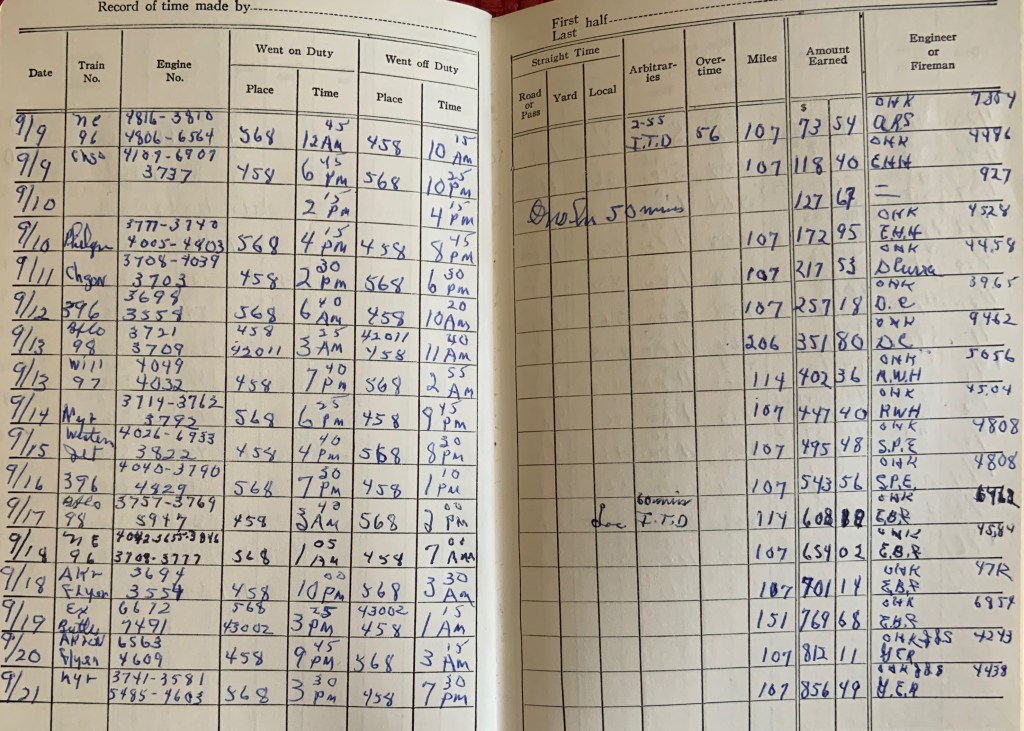 Record of time made by
Date Train No. Engine No. Went on Duty Place Time Went off Duty Place Time
9/9 NE 96 4816-3810 4806-6564 568 12 45 AM 458 10 15 AM
9/9 Chgo 4109-6907 3737 458 6 45 PM 568 10 25 PM
9/10 2 15 PM 4 15 PM
9/10 3777-3740 4005-4803 568 4 15 PM 458 8 45 PM
9/11 Chgon 3708-4039 3703 458 2 30 PM 568 6 30 PM
9/12 396 3698 3558 568 6 40 AM 458 10 20 AM
9/13 Bflo 98 3721 3709 458 42011 3 25 AM 42011 458 11 40 AM
9/13 Will 97 4049 4032 458 7 40 PM 568 2 55 AM
9/14 Nyr 3714-3762 3792 568 6 25 PM 458 9 45 PM
9/15 Western Jet 4026-6933 3822 458 4 40 PM 568 8 30 PM
9/16 396 4040-3790 4829 568 7 30 PM 458 1 10 PM
9/17 Bflo 98 3757-3769 5947 458 3 40 AM 568 3 00 PM
9/18 NE 96 4042-3655-3846 3708-3777 568 1 05 AM 458 7 00 AM
9/18 Akr Flyer 3694 3554 458 10 00 PM 568 3 30 AM
9/19 Ex 6672 7491 568 43002 3 25 PM 43002 458 1 15 AM
9/20 Akron Flyer 6563 4609 458 9 45 PM 568 3 15 AM
9/21 Nyr 3741-3581 5485-4603 568 3 30 PM 458 7 30 PM
First
Last half
Straight Time Road or Pass Yard Local Arbitrar-ies Over-time Miles Amount Earned $ Engineer or Fireman
2-55 I.T.D 56 107 73 54 OHK ARS 7354
107 118 40 OHK EHH 4486
50 mins 127 67 — 927
107 172 95 OHK EHH 4528
107 217 53 OHK 4458
107 257 18 OHK D.C 3965
206 351 80 OHK DC 9462
114 402 36 OHK R.W.H 5056
107 447 40 OHK RWH 4504
107 495 48 OHK S.P.E 4808
107 543 56 OHK S.P.E. 4808
Loc 60 mins I.T.D 114 608 OHK E.B.R
107 654 02 OHK E.B.R 4584
107 701 14 OHK E.B.R 4712
151 769 68 OHK E.B.R 6854
107 812 11 OHK JBS H.E.R 4243
107 856 49 OHK JBS H.E.R 4438